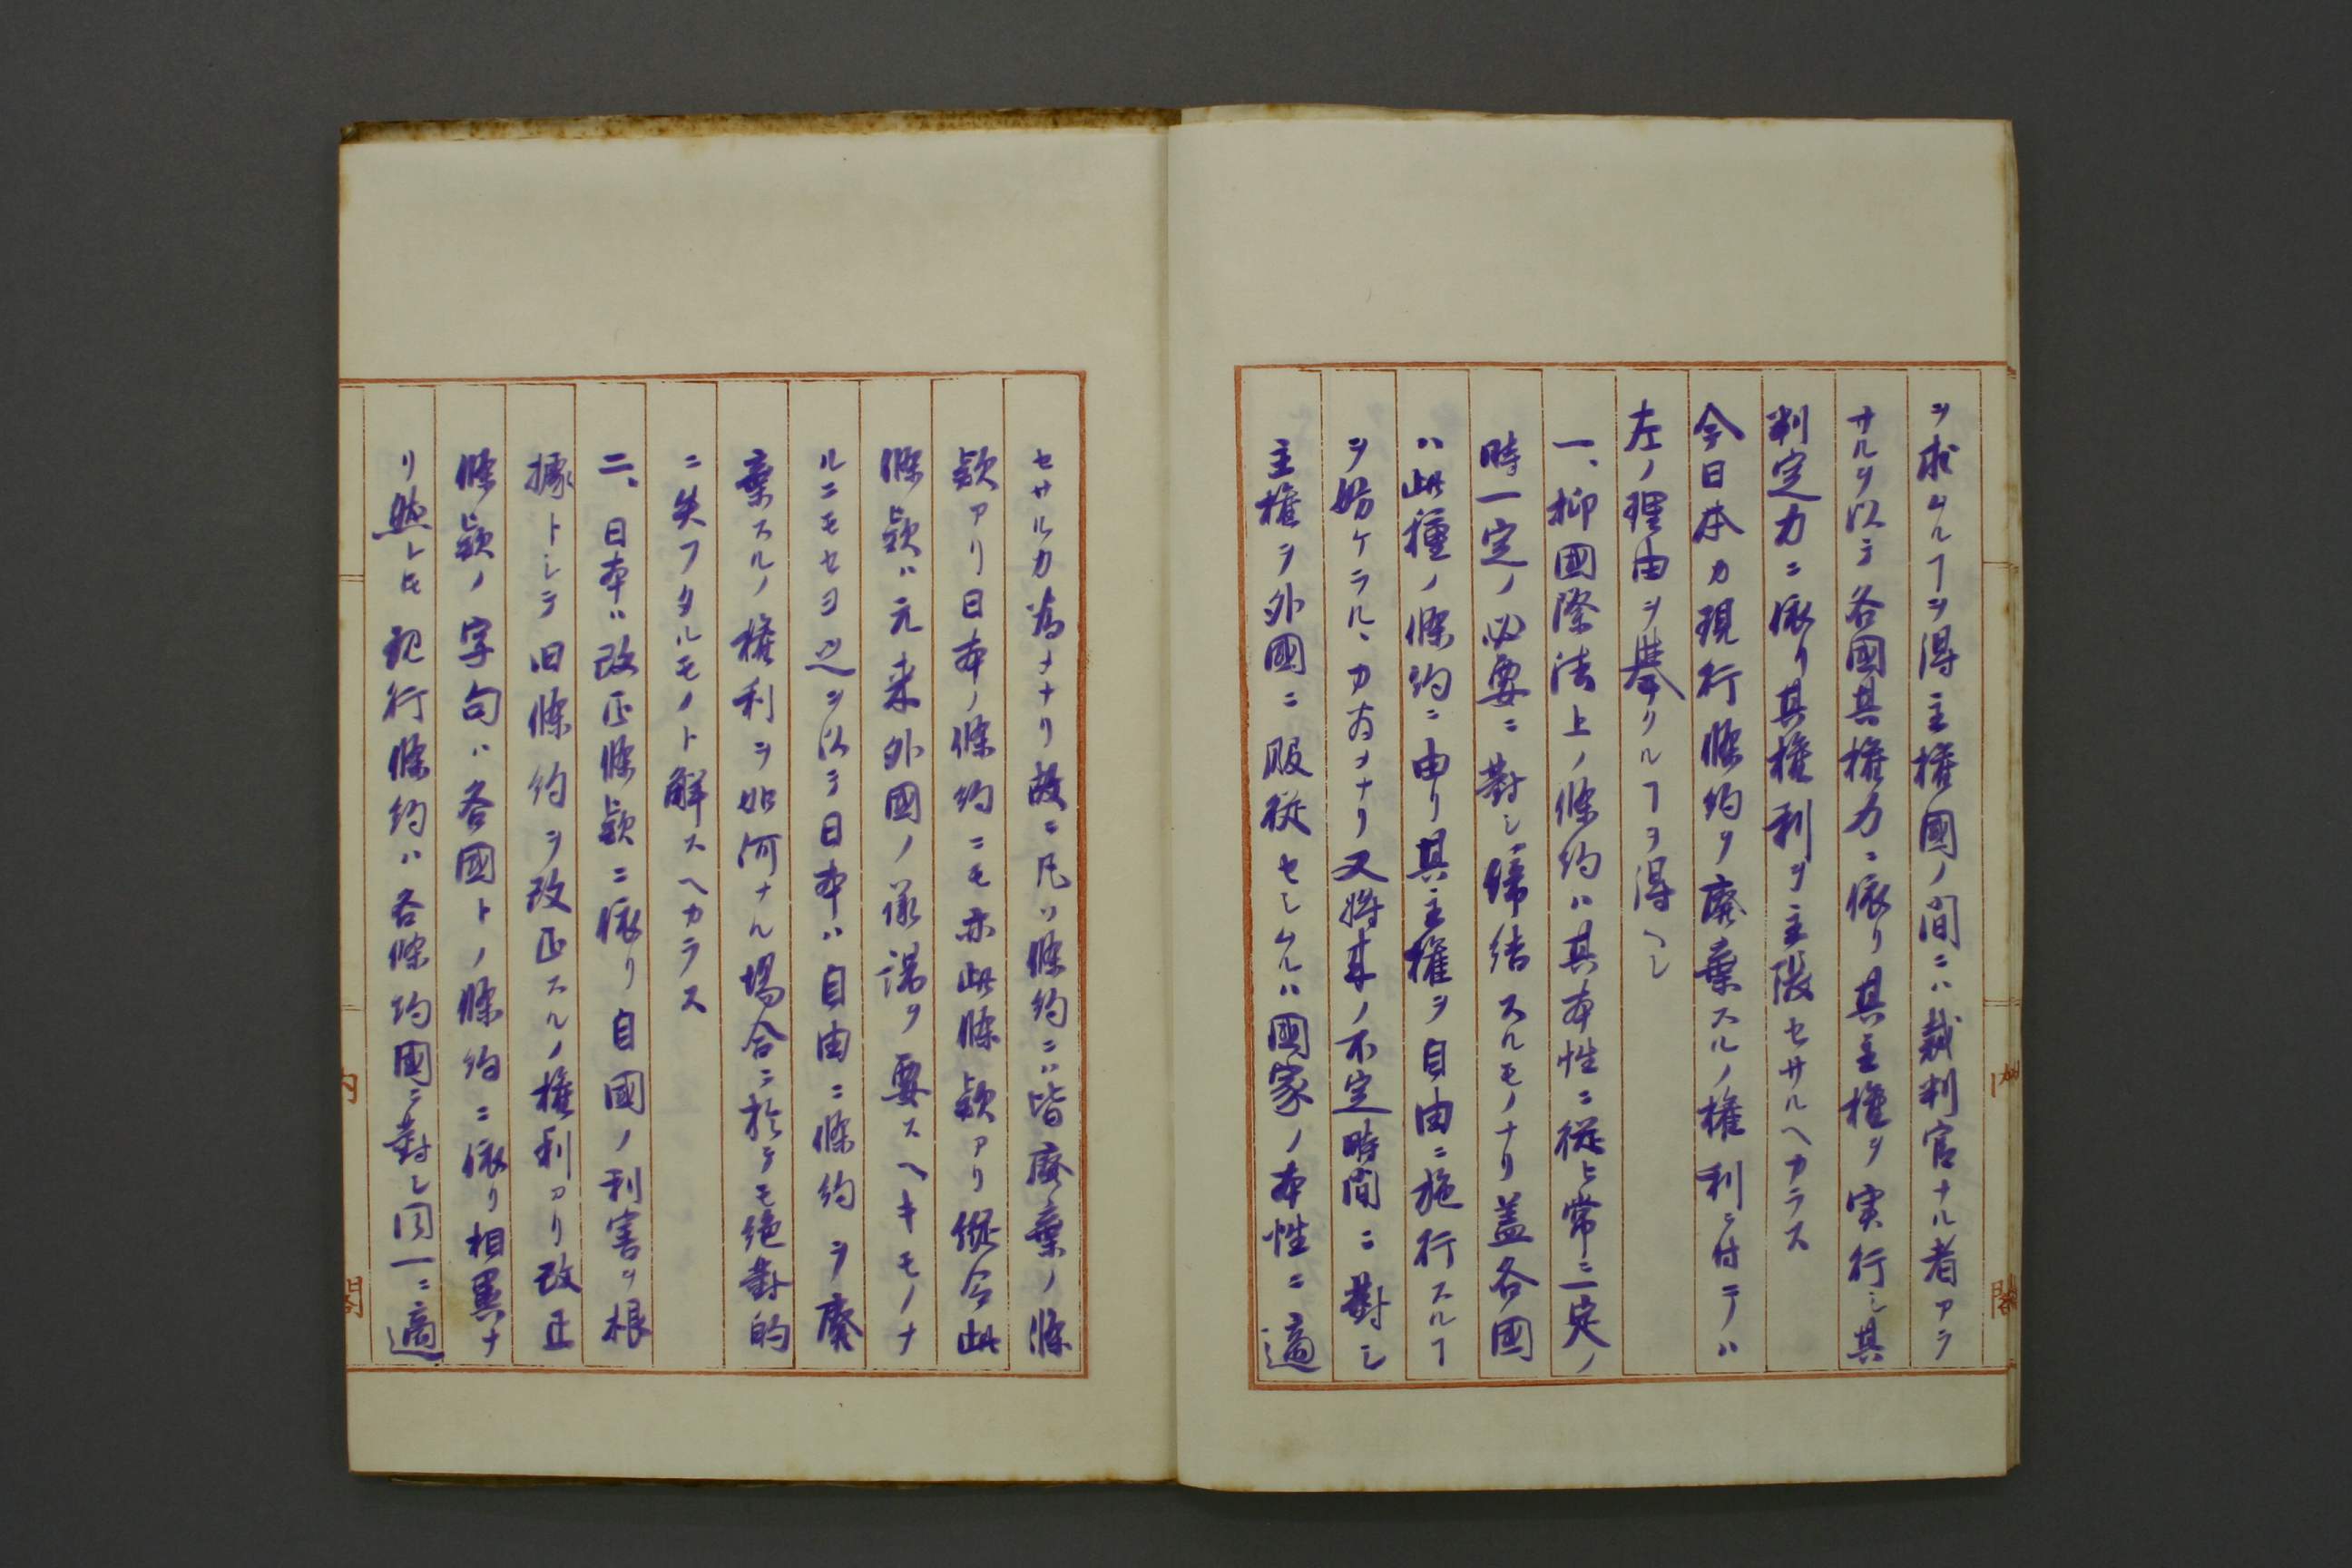 ヲ求ムルヿヲ得主権國ノ間ニハ裁判官ナル者アラ
サルヲ以テ各國其権力ニ依リ其主権ヲ実行シ其
判定力ニ依リ其権利ヲ主張セサルヘカラス
今日本カ現行條約ヲ廃棄スルノ権利ニ付テハ
左ノ理由ヲ挙クルヿヲ得ヘシ
一、抑國際法上ノ條約ハ其本性ニ従ヒ常ニ一定ノ
時一定ノ必要ニ對シ締結スルモノナリ蓋各國
ハ此種ノ條約ニ由リ其主権ヲ自由ニ施行スルヿ
ヲ妨ケラルヽカ為メナリ又将来ノ不定時間ニ對シ
主権ヲ外國ニ服従セシムルハ國家ノ本性ニ適
セサルカ為メナリ故ニ凡ソ條約ニハ皆廃棄ノ條
款アリ日本ノ條約ニモ亦此條款アリ縦令此
條款ハ元来外國ノ承諾ヲ要スヘキモノナ
ルニモセヨ之ヲ以テ日本ハ自由ニ條約ヲ廃
棄スルノ権利ヲ如何ナル場合ニ於テモ絶對的
ニ失フタルモノト解スヘカラス
二、日本ハ改正條款ニ依リ自國ノ利害ヲ根
據トシテ旧條約ヲ改正スルノ権利アリ改正
條款ノ字句ハ各國トノ條約ニ依リ相異ナ
リ然レ𪜈現行條約ハ各條約國ニ對シ同一ニ適
内閣
内閣